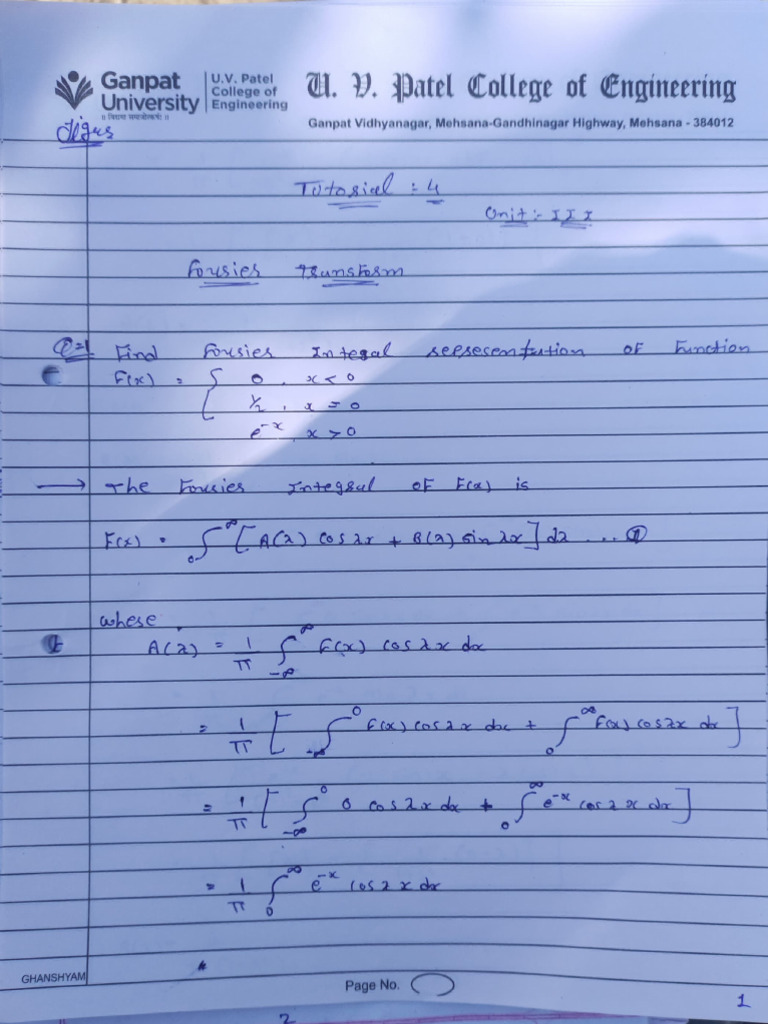 Ganpat University
U.V. Patel College of Engineering
U. V. Patel College of Engineering
॥ विद्यया समाजोत्कर्षः ॥
Ganpat Vidhyanagar, Mehsana-Gandhinagar Highway, Mehsana - 384012
Tutorial : 4
Unit :- III
Fourier transform
Q=1 Find Fourier Integal reeresentution of Function
F(x) = { 0 , x < 0
1/2 , x = 0
e^-x , x > 0
→ The Fourier Integral of F(x) is
F(x) = ∫_0^∞ [A(λ) cos λx + B(λ) sin λx] dλ ... ①
where
A(λ) = 1/π ∫_-∞^∞ F(x) cos λx dx
= 1/π [ ∫_-∞^0 F(x) cos λx dx + ∫_0^∞ F(x) cos λx dx ]
= 1/π [ ∫_-∞^0 0 cos λx dx + ∫_0^∞ e^-x cos λx dx ]
= 1/π ∫_0^∞ e^-x cos λx dx
GHANSHYAM
Page No.
1
2